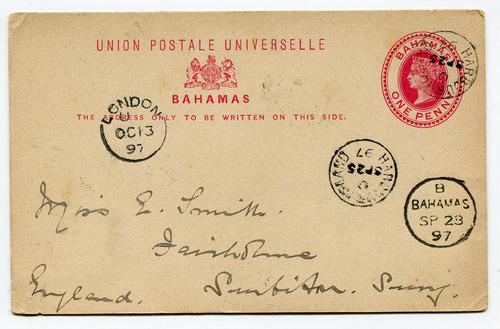 UNION POSTALE UNIVERSELLE
BAHAMAS
THE ADDRESS ONLY TO BE WRITTEN ON THIS SIDE.
BAHAMAS
ONE PENNY
HAR
SP 25
LONDON
OC 13
97
HAR ISLAND 97
C
SP 25
B
BAHAMAS
SP 23
97
Miss E. Smith.
Fairholme
Surbiton. Surrey.
England.